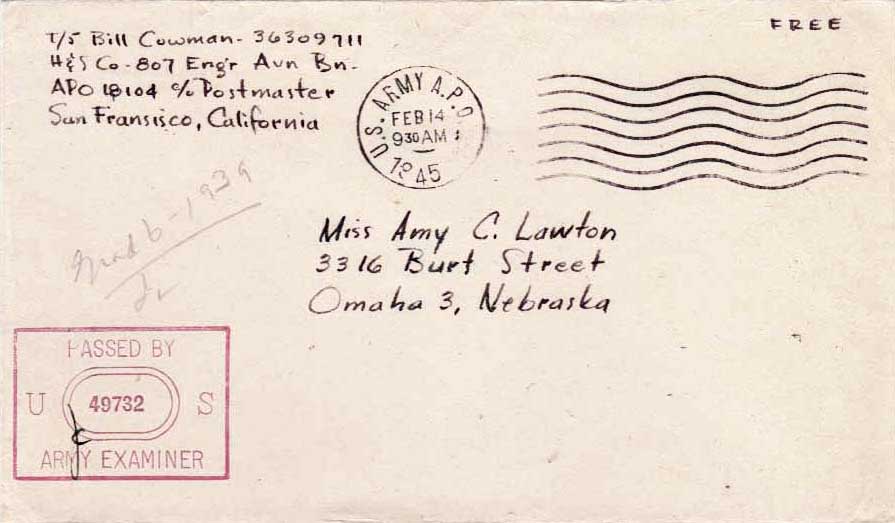 FREE
T/5 Bill Cowman - 36309711
H&S Co - 807 Engr Avn Bn -
APO 18104 c/o Postmaster
San Fransisco, California
U.S. ARMY A.P.O
FEB 14
930AM
1945
1939
Miss Amy C. Lawton
3316 Burt Street
Omaha 3, Nebraska
PASSED BY
U 49732 S
ARMY EXAMINER